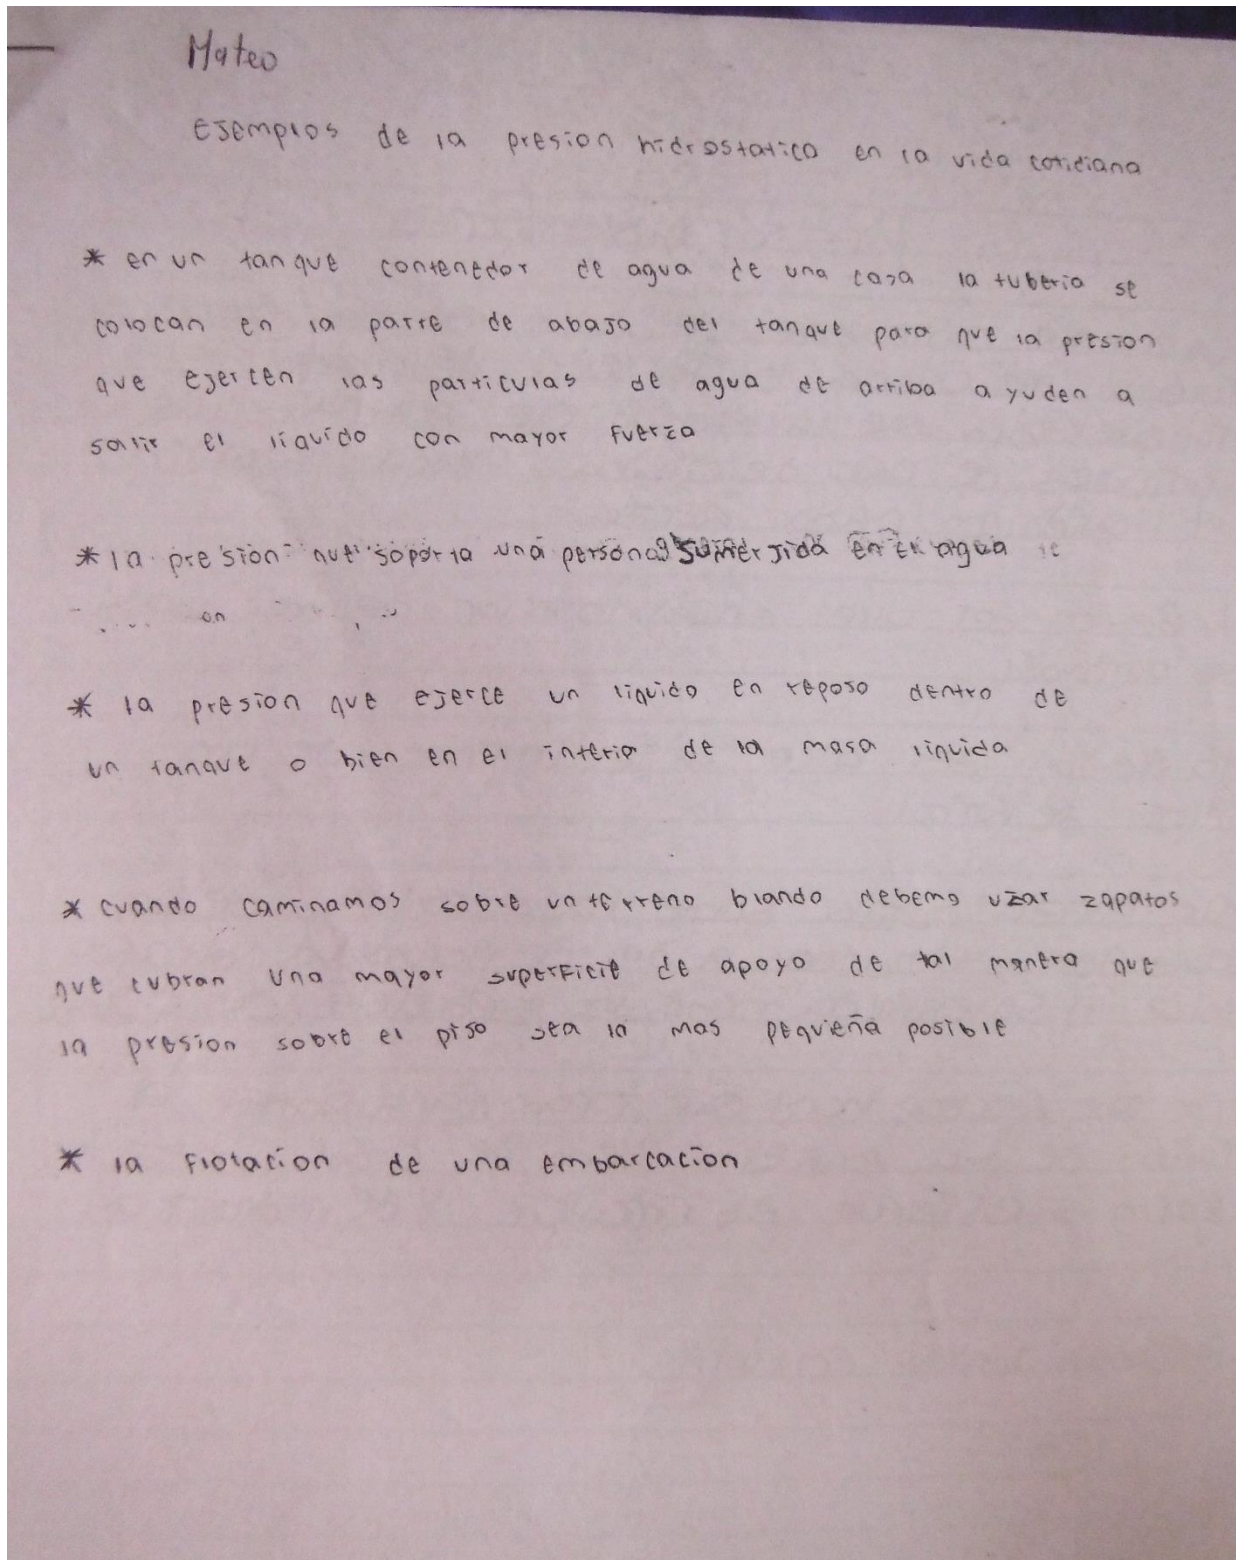 Mateo
Ejemplos de la presion hidrostatica en la vida cotidiana
* en un tanque contenedor de agua de una casa la tuberia se
colocan en la parte de abajo del tanque para que la presion
que ejercen las particulas de agua de arriba ayuden a
salir el liquido con mayor fuerza
* la presion que soporta una persona sumerjida en el agua
* la presion que ejerce un liquido en reposo dentro de
un tanque o bien en el interio de la masa liquida
* cuando caminamos sobre un terreno blando debemo uzar zapatos
que cubran una mayor superficie de apoyo de tal manera que
la presion sobre el piso sea la mas pequieña posible
* la flotacion de una embarcacion